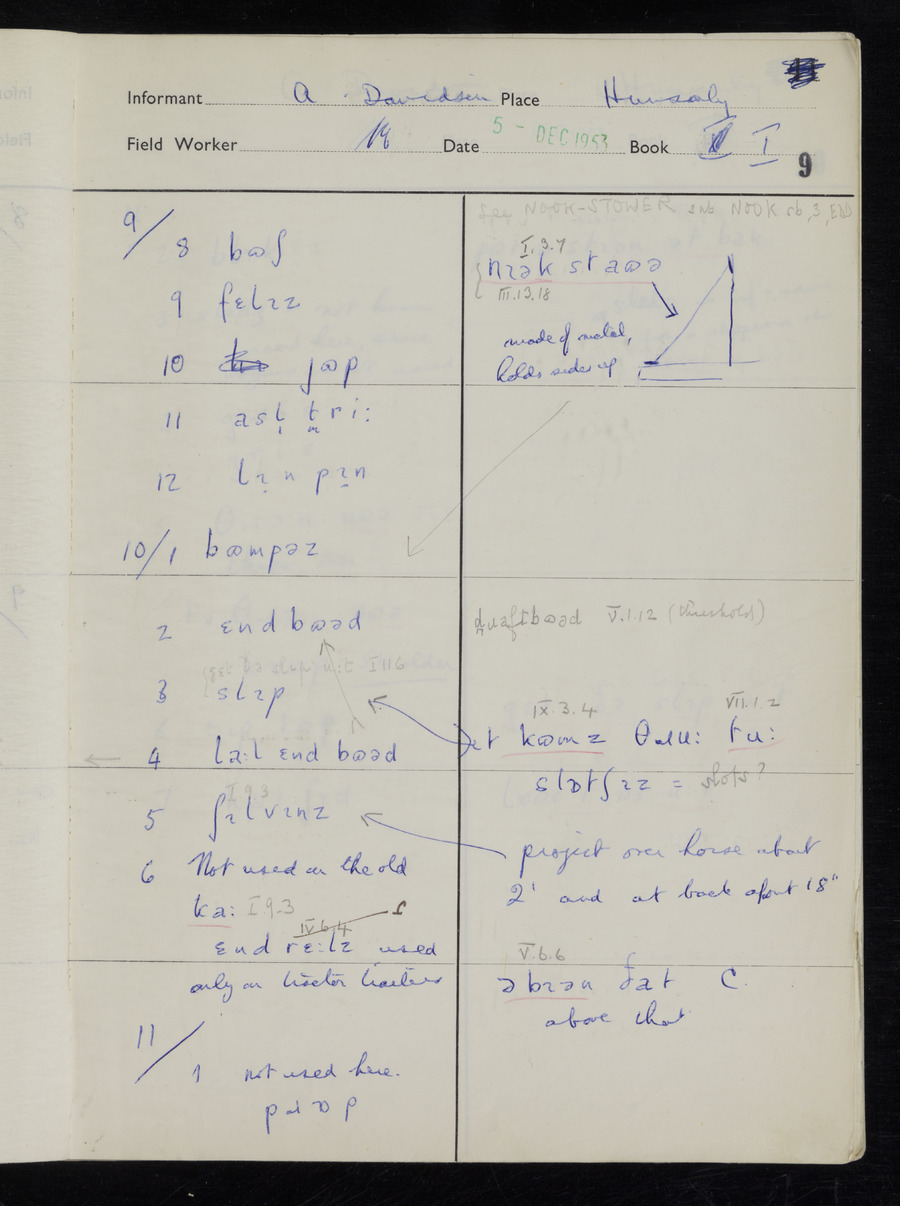 Informant A Davidson Place
Field Worker Date 5 - DEC 1953 Book I
9
9/ 8 bɷʃ
9 felɪz
10 jɷp
11 asl̩ tri:
12 lɪn pɪn
10/1 bɷmpəz
2 ɛnd bɷəd
3 slɪp
4 la:l ɛnd bɷəd
I.9.3
5 ʃɪlvɪnz
6 Not used on the old
ka: I.9.3
IV.6.4
ɛnd rɛ:lz used
only on tractor trailers
11/
1 not used here.
See NOOK-STOWER sub NOOK sb, 3, EDD
I.3.7
nɪək staɷə
III.13.18
made of metal,
holds sides up
V.1.12 (threshold)
IX.3.4 VII.1.2
ət kɷmz tu:
slɒtʃɪz = slots?
project over horse about
2' and at back about 18"
V.6.6
əbɪən ðat C.
above that